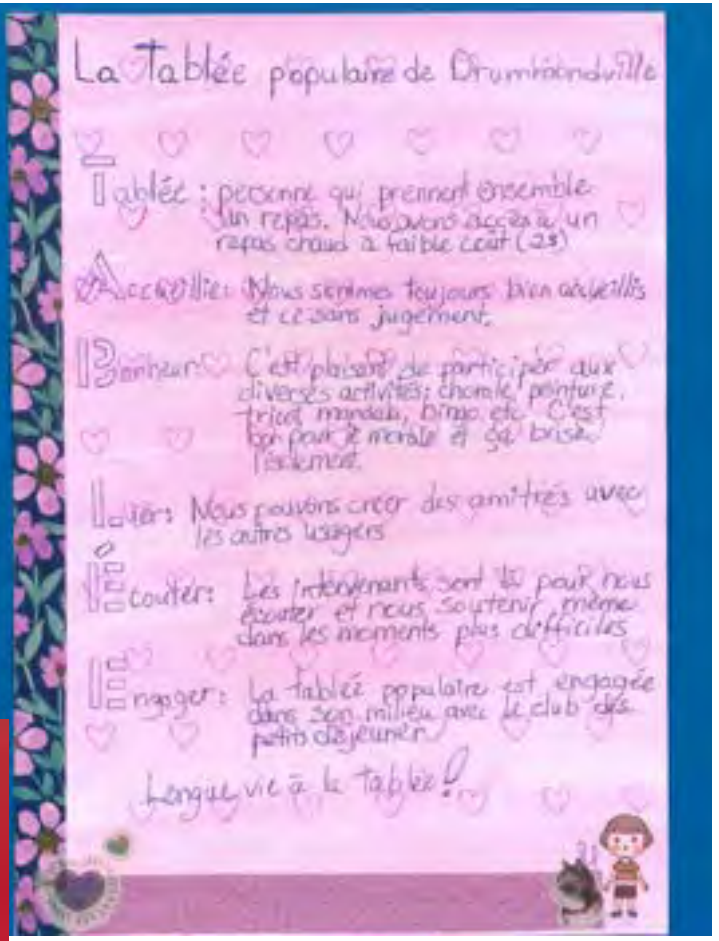 La Tablée populaire de Drummondville
Tablée : personne qui prennent ensemble
un repas. Nous avons accès à un
repas chaud à faible coût (2$)
Accueillir : Nous sommes toujours bien accueillis
et ce sans jugement.
Bonheur : C'est plaisant de participer aux
diverses activités; chorale, peinture,
tricot, mandala, bingo etc. C'est
bon pour le morale et ça brise
l'isolement.
Lier : Nous pouvons créer des amitiés avec
les autres usagers
Écouter : Les intervenants sont là pour nous
écouter et nous soutenir même
dans les moments plus difficiles
Engager : La tablée populaire est engagée
dans son milieu avec le club des
petits déjeuner
Longue vie à la tablée!